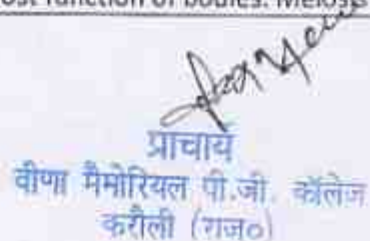 ost function of bodies. Meiosis
प्राचार्य
वीणा मैमोरियल पी.जी. कॉलेज
करौली (राज०)